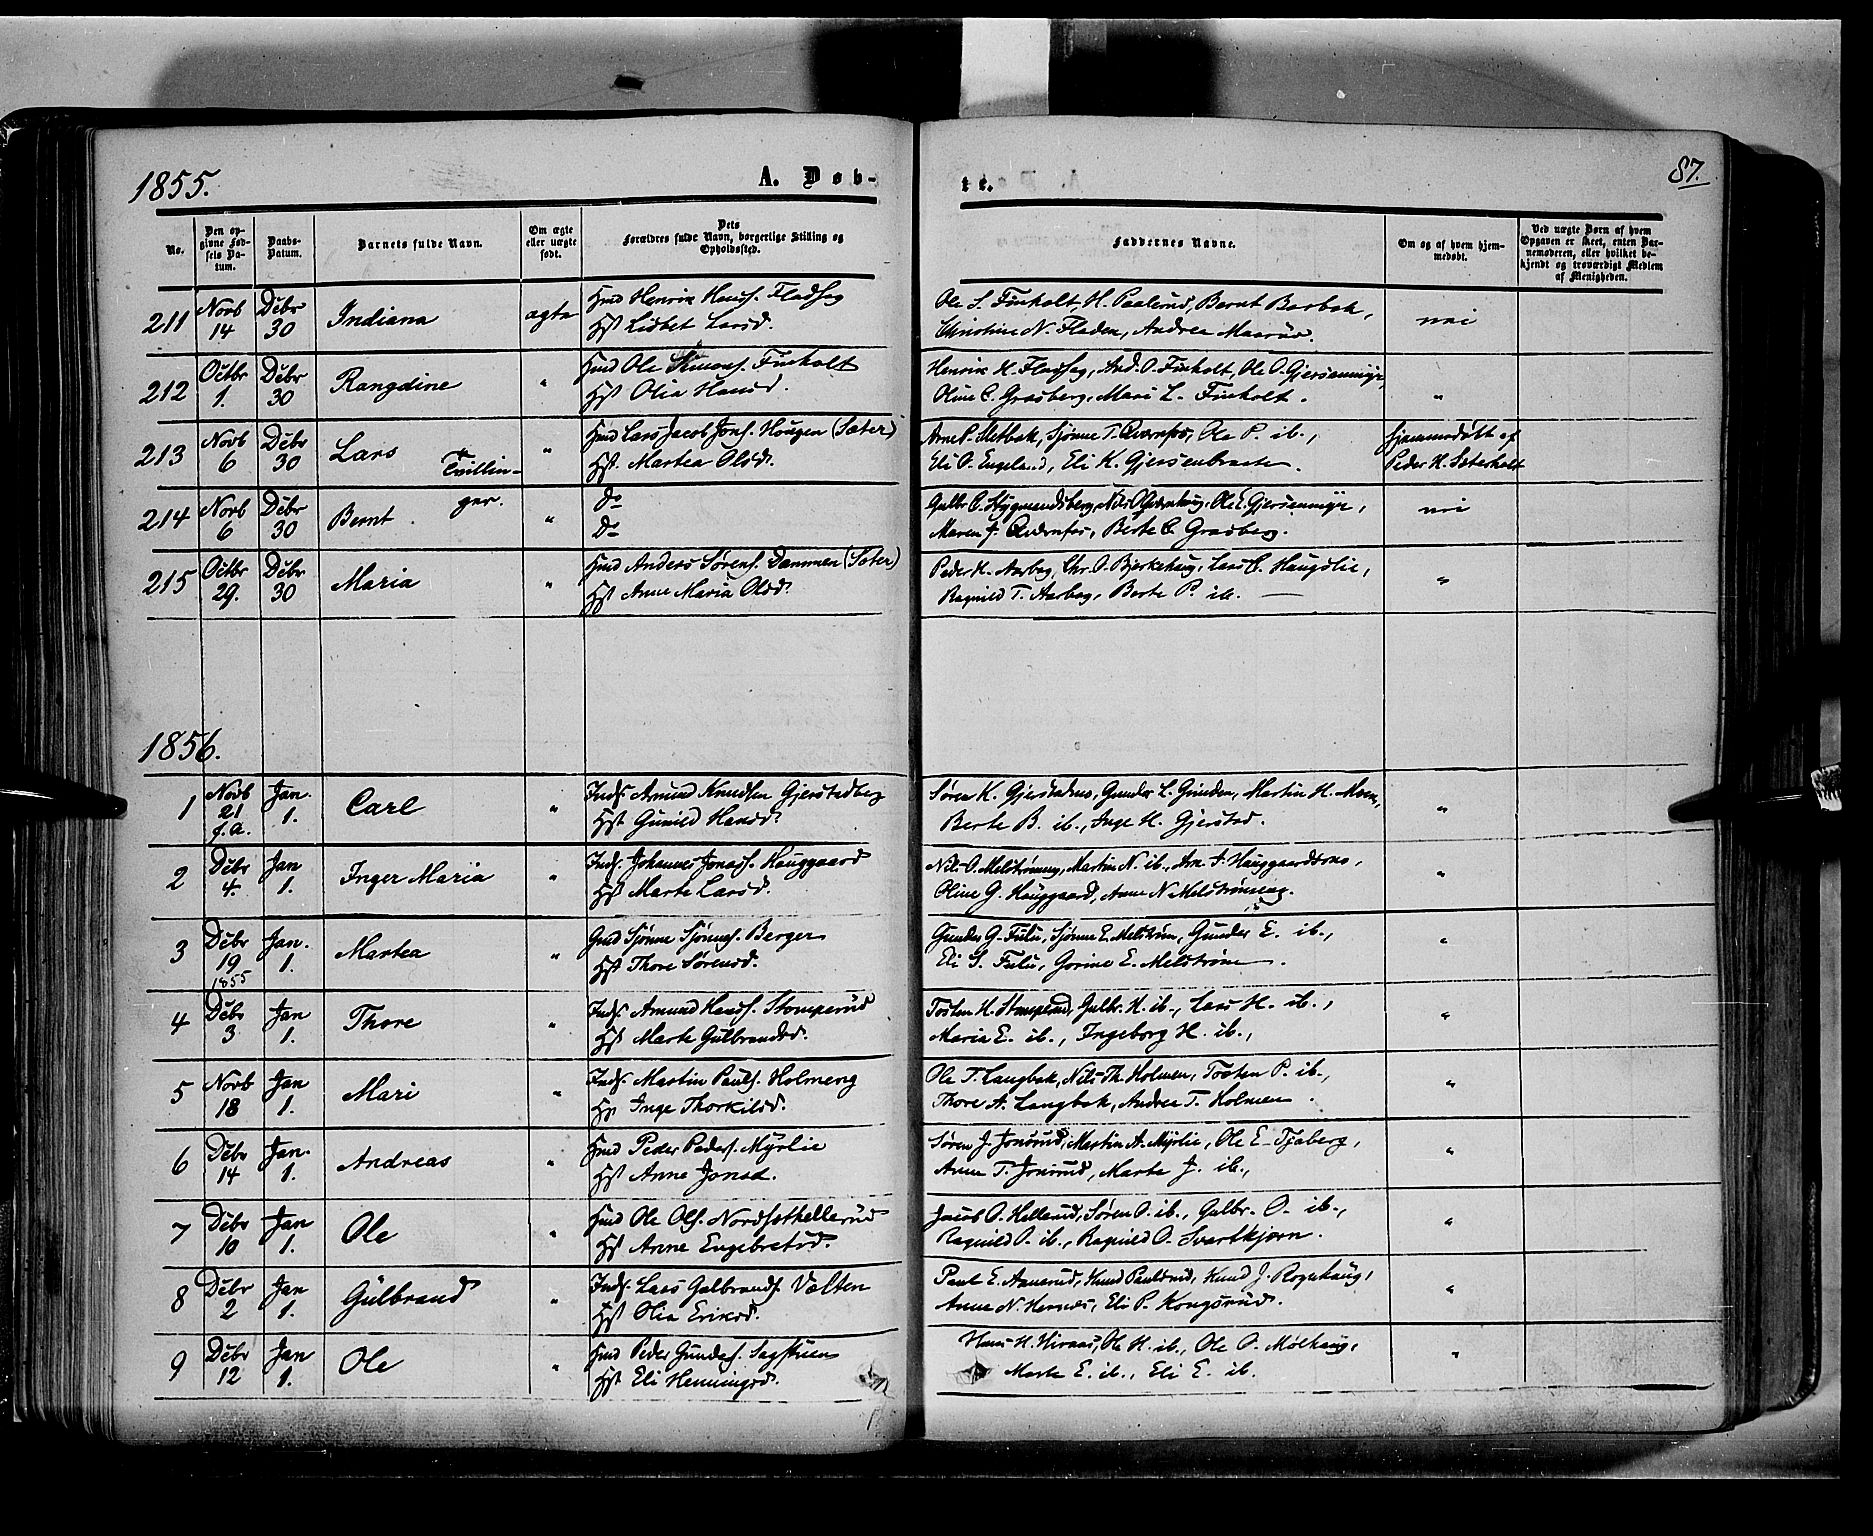 1855.
A. Døb-
te.
87.
No.
Den op-
givne Fød-
sels Da-
tum.
Daabs-
Datum.
Barnets fulde Navn.
Om ægte
eller uægte
født.
Dets
Forældres fulde Navn, borgerlige Stilling og
Opholdssted.
Faddernes Navne.
Om og af hvem hjem-
medøbt.
Ved uægte Børn af hvem
Opgaven er skeet, enten Bar-
nemoderen, eller hvilket be-
kjendt og troværdigt Medlem
af Menigheden.
211 Novb 14 Dcbr 30 Indiana ægte
Hmd Henrik Hans. Fladseg
Hst Lisbet Larsd.
Ole S. Finholt, H. Paalerud, Bernt Berbak,
Christine N. Fladen, Andrea Maarud.
nei
212 Octbr 1. Dcbr 30 Rangdine "
Hmd Ole Simens. Finholt
Hst Olia Hansd.
Henrik H. Fladseg, And. O. Finholt, Ole O. Gjersenmyr,
Oline C. Grasberg, Mari L. Finholt.
"
213 Novb 6 Dcbr 30 Lars Tvillin- "
Hmd Lars Jacob Jons. Hougen (Sæter)
Hst Martea Olsd.
Arne P. Sletbak, Sjønne T. Qvernfos, Ole P. ib.,
Eli O. Engeland, Eli K. Gjersenbraaten.
Hjemmedøbt af
Peder H. Sæterholt
214 Novb 6 Dcbr 30 Bernt ger. "
Do
Do
Gulbr. O. Stygmandsberg, Nils O. Qvernhaug, Ole E. Gjersenmyr,
Maren J. Qvernfos, Berte C. Grasberg.
nei
215 Octbr 29. Dcbr 30 Maria "
Hmd Anders Sørens. Dammen (Sæter)
Hst Anne Maria Olsd.
Peder H. Aarbog, Chr. O. Bjerkehaug, Lars C. Haugslie,
Ragnild T. Aarbog, Berte P. ib.
"
1856.
1 Novb 21 f.a. Jan. 1. Carl "
Inds. Amund Knudsen Gjerstadberg
Hst Gunild Hansd.
Søren K. Gjerstadmo, Gunder L. Grinden, Martin H. Moen,
Berte B. ib., Inge H. Gjerstad.
"
2 Dcbr 4. Jan 1. Inger Maria "
Inds. Johannes Jonass. Hauggaard
Hst Marte Larsd.
Nils O. Melstrømeng, Martin N. ib., Arn. J. Hauggaardsmo,
Oline G. Hauggaard, Anne N. Melstrømeng.
"
3 Dcbr 19 1855 Jan. 1. Martea "
Gmd Sjønne Sjønnes. Berger
Hst Thore Sørensd.
Gunder G. Fulu, Sjønne E. Melstrøm, Gunder E. ib.,
Eli S. Fulu, Gorine E. Melstrøm.
"
4 Dcbr 3 Jan 1. Thore "
Inds. Amund Hans. Stomperud
Hst Marte Gulbrandsd.
Tosten H. Stomperud, Gulbr. H. ib., Lars H. ib.,
Maria E. ib., Ingeborg H. ib.,
"
5 Novb 18 Jan 1. Mari "
Inds. Martin Pauls. Holmeng
Hst Inge Thorkilsd.
Ole T. Langbak, Nils Th. Holmen, Tosten P. ib.,
Thore A. Langbak, Andrea T. Holmen.
"
6 Dcbr 14 Jan. 1. Andreas "
Hmd Peder Peders. Myrlie
Hst Anne Jonsd.
Søren J. Jonsrud, Martin A. Myrlie, Ole E. Tjaberg,
Anne T. Jonsrud, Marte J. ib.,
"
7 Dcbr 10 Jan 1. Ole "
Hmd Ole Ols. Nordsæthellerud
Hst Anne Engebretsd.
Jacob O. Hellerud, Søren O. ib., Gulbr. O. ib.,
Ragnild O. ib., Ragnild O. Svartkjørn.
"
8 Dcbr 2 Jan 1. Gulbrand "
Inds. Lars Gulbrands. Vælten
Hst Olia Eriksd.
Paul E. Aanerud, Knud Paulsrud, Knud J. Rognhaug,
Anne N. Hernes, Eli P. Kongsrud.
"
9 Dcbr 12 Jan 1. Ole "
Hmd Peder Gunders. Sagstuen
Hst Eli Henningsd.
Hans H. Hiraas, Ole H. ib., Ole O. Mølhaug,
Marte E. ib., Eli E. ib.
"